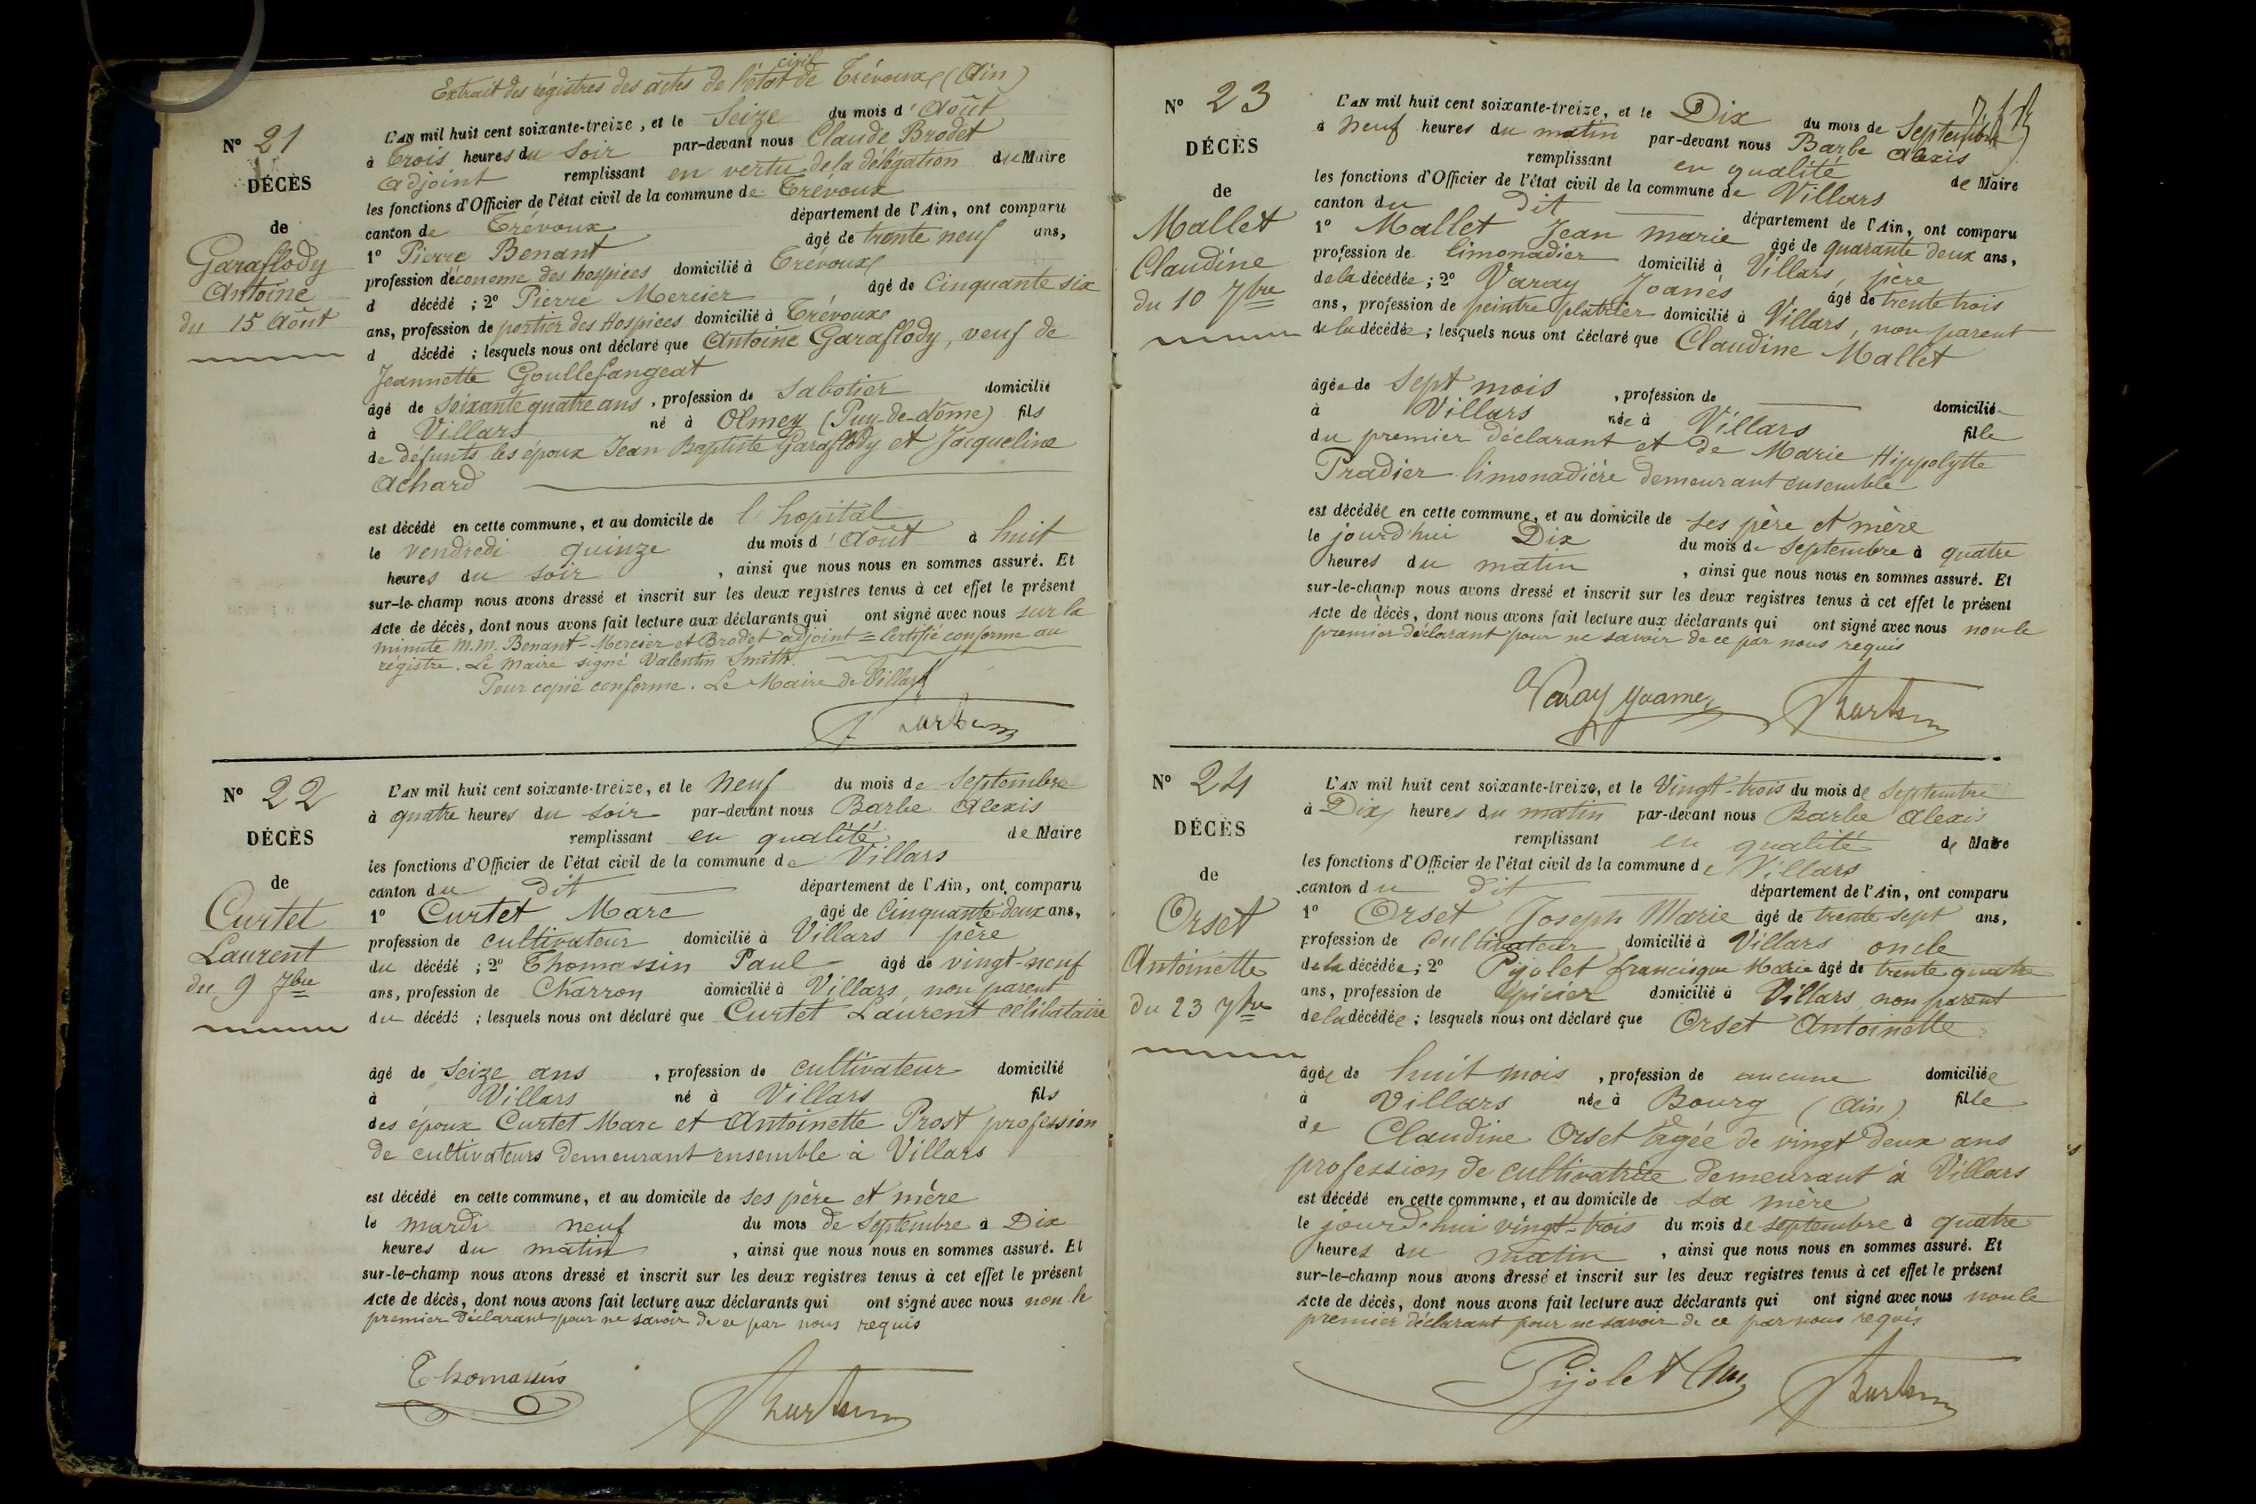 Extrait des régistres des actes de l'état civil de Trévoux (Ain)
N° 21
DÉCÈS
de
Garaflody
Antoine
du 15 Août
L'AN mil huit cent soixante-treize, et le Seize du mois d'Août
à Trois heures du Soir par-devant nous Claude Brodet
adjoint remplissant en vertu de la délégation du Maire
les fonctions d'Officier de l'état civil de la commune de Trévoux
canton de Trévoux département de l'Ain, ont comparu
1° Pierre Benant âgé de trente neuf ans,
profession d'économe des hospices domicilié à Trévoux
d décédé ; 2° Pierre Mercier âgé de Cinquante six
ans, profession de portier des Hospices domicilié à Trévoux
d décédé ; lesquels nous ont déclaré que Antoine Garaflody, veuf de
Jeannette Goullefangeat
âgé de Soixante quatre ans, profession de Sabotier domicilié
à Villars né à Olmey (Puy-de-dôme) fils
de défunts les époux Jean Baptiste Garaflody et Jacqueline
Achard
est décédé en cette commune, et au domicile de l'hopital
le vendredi quinze du mois d'Août à huit
heures du soir, ainsi que nous nous en sommes assuré. Et
sur-le-champ nous avons dressé et inscrit sur les deux registres tenus à cet effet le présent
Acte de décès, dont nous avons fait lecture aux déclarants qui ont signé avec nous sur la
minute M.M. Benant - Mercier et Brodet adjoint = Certifié conforme au
registre. Le Maire signé Valentin Smith.
Pour copie conforme. Le Maire de Villars
N° 22
DÉCÈS
de
Curtet
Laurent
du 9 7bre
L'AN mil huit cent soixante-treize, et le Neuf du mois de Septembre
à quatre heures du soir par-devant nous Barbe Alexis
remplissant en qualité de Maire
les fonctions d'Officier de l'état civil de la commune de Villars
canton du dit département de l'Ain, ont comparu
1° Curtet Marc âgé de Cinquante-deux ans,
profession de cultivateur domicilié à Villars père
du décédé ; 2° Thomassin Paul âgé de vingt-neuf
ans, profession de Charron domicilié à Villars, non parent
du décédé ; lesquels nous ont déclaré que Curtet Laurent célibataire
âgé de Seize ans, profession de cultivateur domicilié
à Villars né à Villars fils
des époux Curtet Marc et Antoinette Prost profession
de cultivateurs demeurant ensemble à Villars
est décédé en cette commune, et au domicile de ses père et mère
le mardi neuf du mois de Septembre à Dix
heures du matin, ainsi que nous nous en sommes assuré. Et
sur-le-champ nous avons dressé et inscrit sur les deux registres tenus à cet effet le présent
Acte de décès, dont nous avons fait lecture aux déclarants qui ont signé avec nous non le
premier Déclarant pour ne savoir de ce par nous requis
Thomassin
N° 23
DÉCÈS
de
Mallet
Claudine
du 10 7bre
L'AN mil huit cent soixante-treize, et le Dix du mois de Septembre
à Neuf heures du matin par-devant nous Barbe Alexis
remplissant en qualité de Maire
les fonctions d'Officier de l'état civil de la commune de Villars
canton du dit département de l'Ain, ont comparu
1° Mallet Jean marie âgé de quarante deux ans,
profession de limonadier domicilié à Villars, père
de la décédée ; 2° Varay Joanès âgé de trente trois
ans, profession de peintre platrier domicilié à Villars, non parent
de la décédée ; lesquels nous ont déclaré que Claudine Mallet
âgée de Sept mois, profession de domicilié
à Villars née à Villars fille
du premier déclarant et de Marie Hippolytte
Pradier limonadière demeurant ensemble
est décédée en cette commune, et au domicile de ses père et mère
le jourd'hui Dix du mois de Septembre à quatre
heures du matin, ainsi que nous nous en sommes assuré. Et
sur-le-champ nous avons dressé et inscrit sur les deux registres tenus à cet effet le présent
Acte de décès, dont nous avons fait lecture aux déclarants qui ont signé avec nous non le
premier déclarant pour ne savoir de ce par nous requis
N° 24
DÉCÈS
de
Orset
Antoinette
Du 23 7bre
L'AN mil huit cent soixante-treize, et le Vingt-trois du mois de Septembre
à Dix heures du matin par-devant nous Barbe Alexis
remplissant en qualité de Maire
les fonctions d'Officier de l'état civil de la commune de Villars
canton du dit département de l'Ain, ont comparu
1° Orset Joseph Marie âgé de trente-sept ans,
profession de Cultivateur domicilié à Villars oncle
de la décédée ; 2° Pijolet francisque Marie âgé de trente quatre
ans, profession de épicier domicilié à Villars, non parent
de la décédée ; lesquels nous ont déclaré que Orset Antoinette
âgée de huit mois, profession de aucune domiciliée
à Villars née à Bourg (Ain) fille
de Claudine Orset âgée de vingt deux ans
profession de cultivatrice demeurant à Villars
est décédé en cette commune, et au domicile de sa mère
le jourd'hui vingt-trois du mois de septembre à quatre
heures du matin, ainsi que nous nous en sommes assuré. Et
sur-le-champ nous avons dressé et inscrit sur les deux registres tenus à cet effet le présent
Acte de décès, dont nous avons fait lecture aux déclarants qui ont signé avec nous non le
premier déclarant pour ne savoir de ce par nous requis
Pijolet